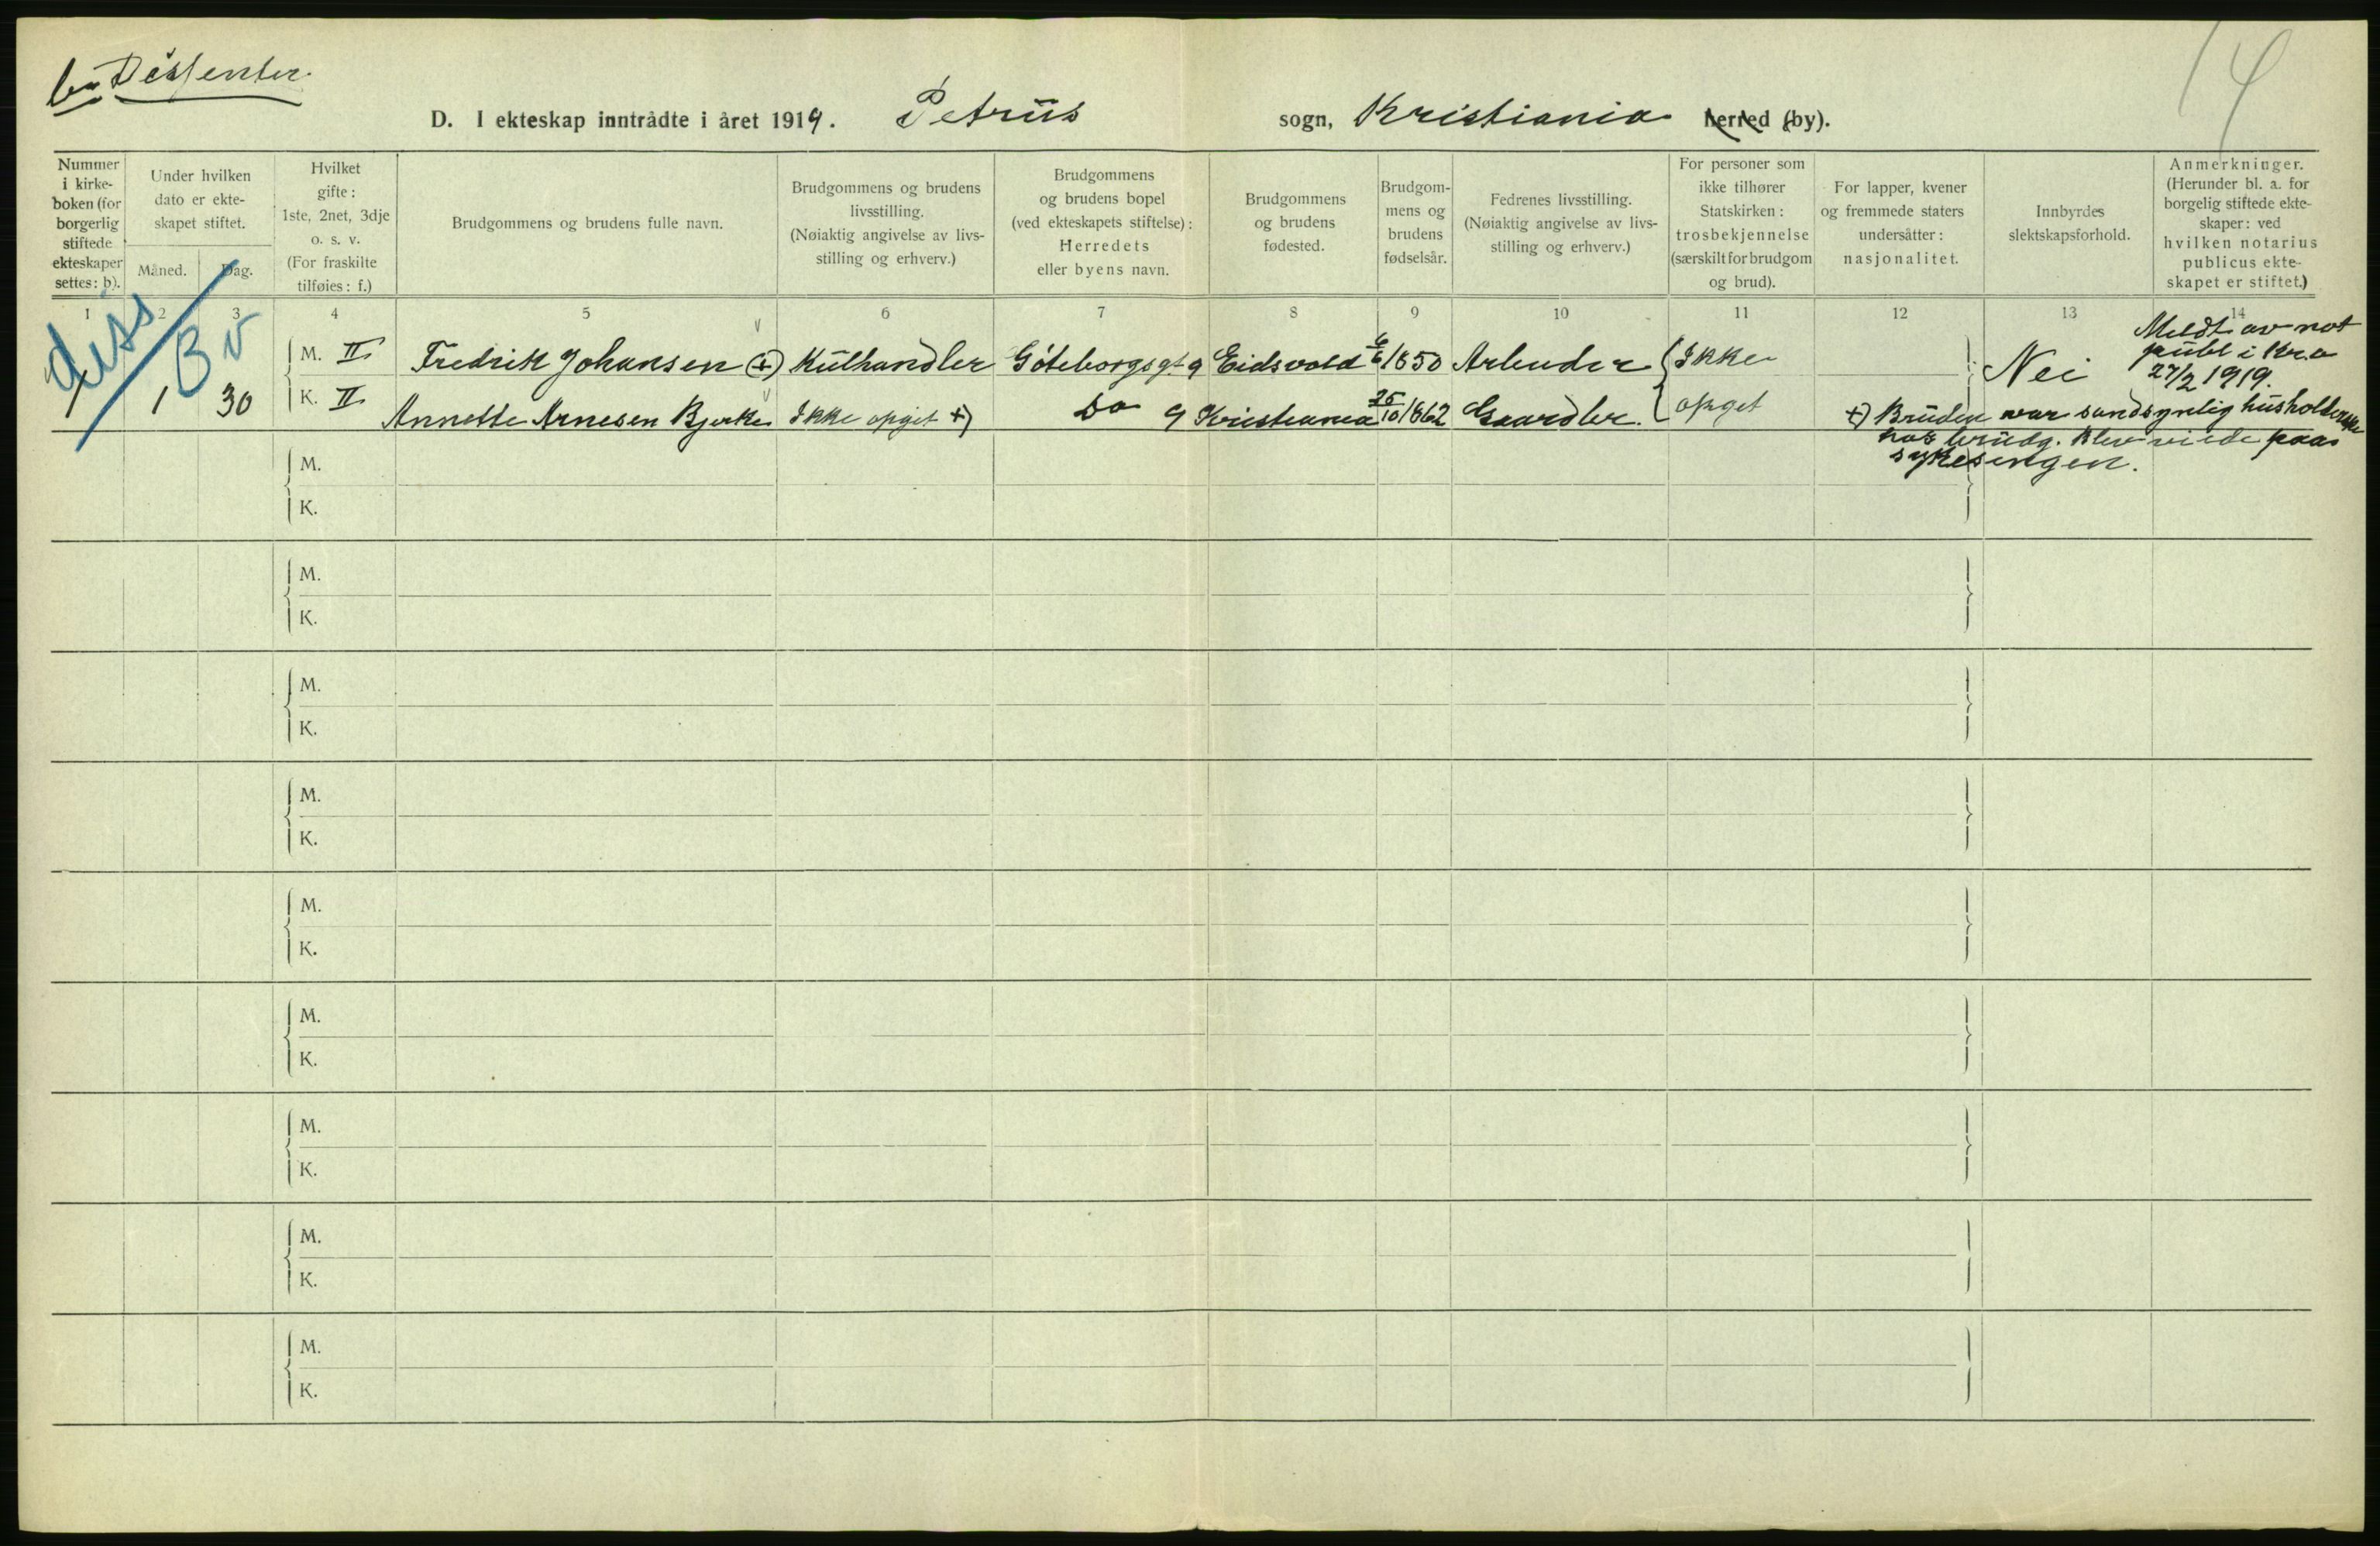 Dissenter.
14
D. I ekteskap inntrådte i året 1919. Petrus sogn, Kristiania herred (by).
Nummer
i kirke-
boken (for
borgerlig
stiftede
ekteskaper
settes: b).
Under hvilken
dato er ekte-
skapet stiftet.
Måned.
Dag.
Hvilket
gifte:
1ste, 2net, 3dje
o. s. v.
(For fraskilte
tilføies: f.)
Brudgommens og brudens fulle navn.
Brudgommens og brudens
livsstilling.
(Nøiaktig angivelse av livs-
stilling og erhverv.)
Brudgommens
og brudens bopel
(ved ekteskapets stiftelse):
Herredets
eller byens navn.
Brudgommens
og brudens
fødested.
Brudgom-
mens og
brudens
fødselsår.
Fedrenes livsstilling.
(Nøiaktig angivelse av livs-
stilling og erhverv.)
For personer som
ikke tilhører
Statskirken:
trosbekjennelse
(særskilt for brudgom
og brud).
For lapper, kvener
og fremmede staters
undersåtter:
nasjonalitet.
Innbyrdes
slektskapsforhold.
Anmerkninger.
(Herunder bl. a. for
borgelig stiftede ekte-
skaper: ved
hvilken notarius
publicus ekte-
skapet er stiftet.)
1 2 3 4 5 6 7 8 9 10 11 12 13 14
diss
B v
1 1 30
M. II Fredrik Johansen (+) Kulhandler Göteborgsgt 9 Eidsvold 6/6 1850 Arbeider Ikke
K. II Annette Arnesen Bjerke Ikke opgit +) Do 9 Kristiania 25/10 1862 Gaardbr. opget
Nei
Meldt av not
publ i Kr.a
27/2 1919.
+) Bruden var sandsynlig husholderske
hos brudg. Blev viede paa
sykesengen.
M.
K.
M.
K.
M.
K.
M.
K.
M.
K.
M.
K.
M.
K.
M.
K.
M.
K.